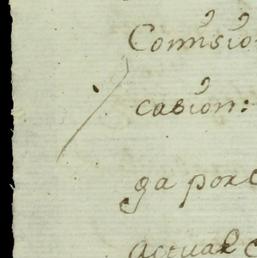 Comisio
casion:
ga por
actual